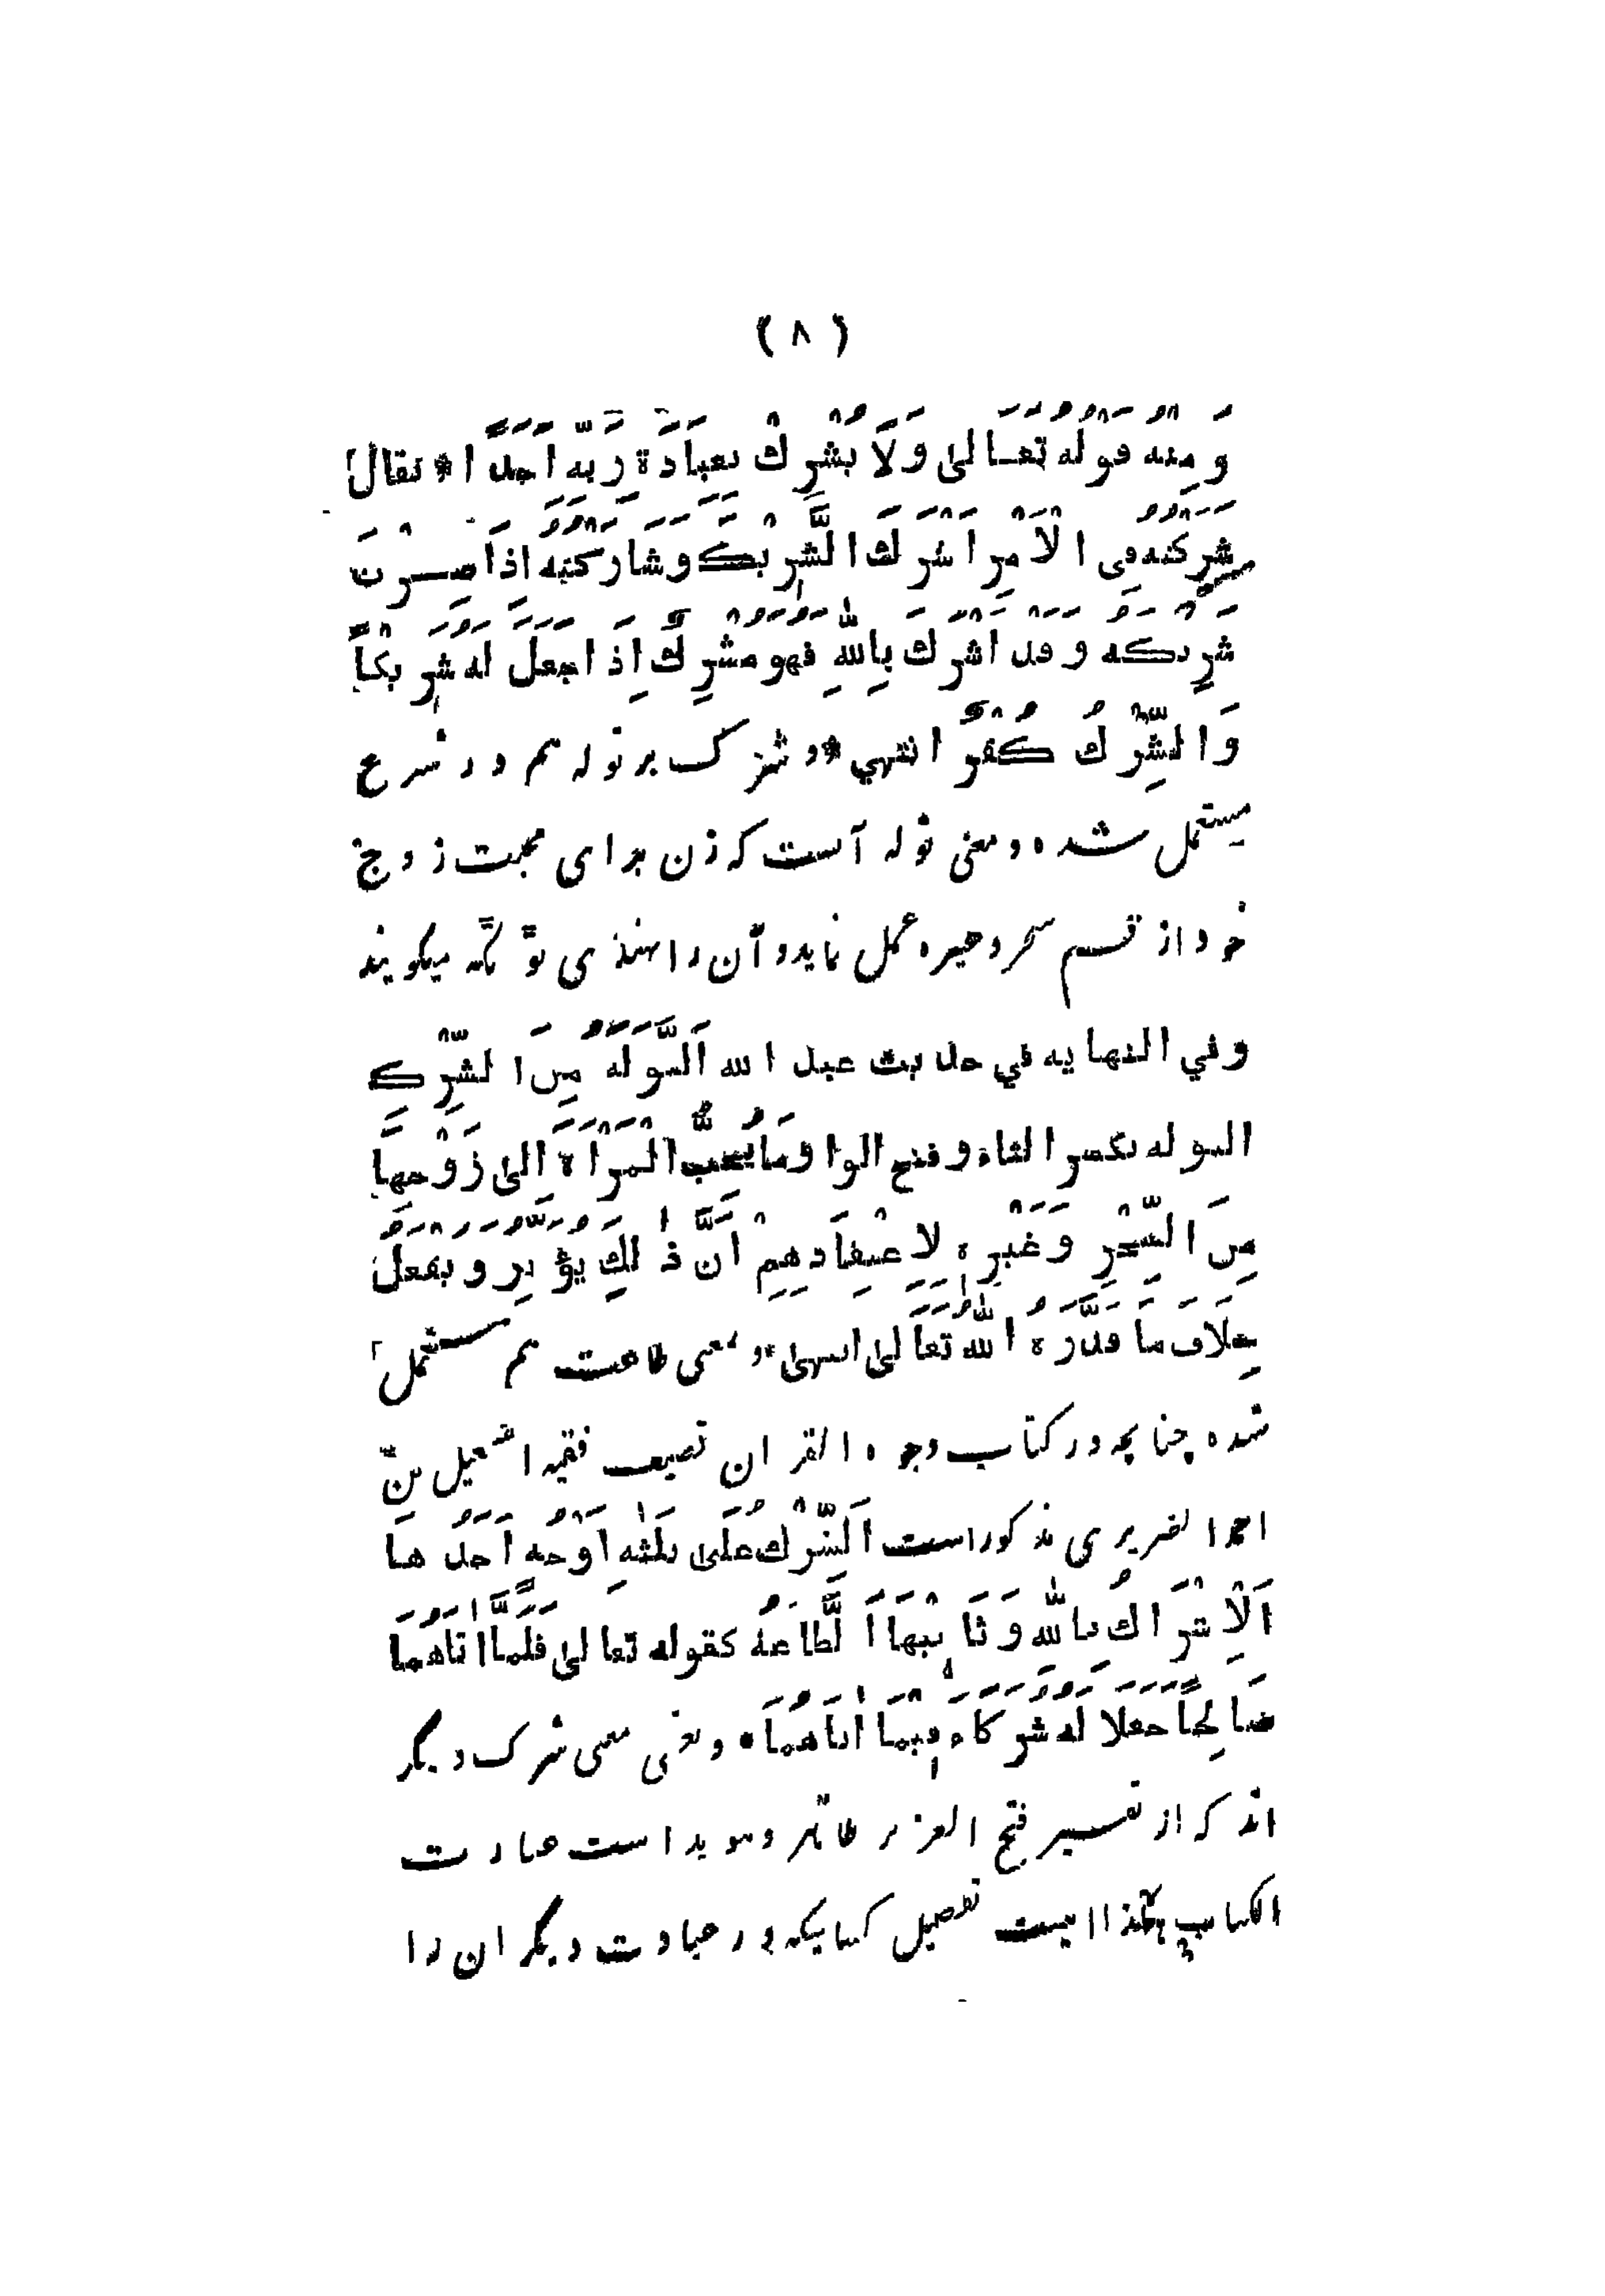 ( ٨ )
وَ مِنْهُ قَوْلُهُ تَعَالىٰ وَلَا يُشْرِكْ بِعِبَادَةِ رَبِّهِ اَحَدًا * يُقَالُ
شَرِكْتُهُ فِى الْاَمْرِ اَشْرَكُ الشَّرِيكَ وَشَارَكْتُهُ اِذَا صِرْتَ
شَرِيكَهُ وَقَدْ اَشْرَكَ بِاللّٰهِ فَهُوَ مُشْرِكٌ اِذَا جَعَلَ لَهُ شَرِيْكًا
وَالشِّرْكُ كُفْرٌ انتهي * و شرک بر توله هم در شرع
مستعمل شده و معنی توله آنست که زن برای محبت زوج
خود از قسم سحر وغیره عمل نماید و آن را بهندی ٹوٹکه میگویند
وفي النهايه في حديث عبد الله اَلتِّوَلَةُ مِنَ الشِّرْكِ
التوله بكسر التاء و فتح الواو مَا يُحَبِّبُ الْمَرْاَةَ اِلىٰ زَوْجِهَا
مِنَ السِّحْرِ وَغَيْرِهِ لِاعْتِقَادِهِمْ اَنَّ ذٰلِكَ يُؤَثِّرُ وَيَفْعَلُ
خِلَافَ مَا قَدَّرَهُ اللّٰهُ تَعَالىٰ انتهىٰ * و بمعنی طاعت هم مستعمل
شده چنانچه در کتاب وجوه القران تصنیف فقیه اسمعیل بن
احمد الضریری مذکور است اَلشِّرْكُ عَلىٰ ثَلٰثَةِ اَوْجُهٍ اَحَدُهَا
اَلْاِشْرَاكُ بِاللّٰهِ وَثَانِيْهَا اَلطَّاعَةُ كقوله تعالىٰ فَلَمَّا اٰتَاهُمَا
صَالِحًا جَعَلَا لَهُ شُرَكَاءَ فِيْمَا اٰتَاهُمَا * و بعضی معنی شرک دیگر
اند که از تفسیر فتح العزیز ظاهر و هویدا است عبارت
الکتاب هکذا اینست تفصیل کسانیکه در عبادت دیگران را